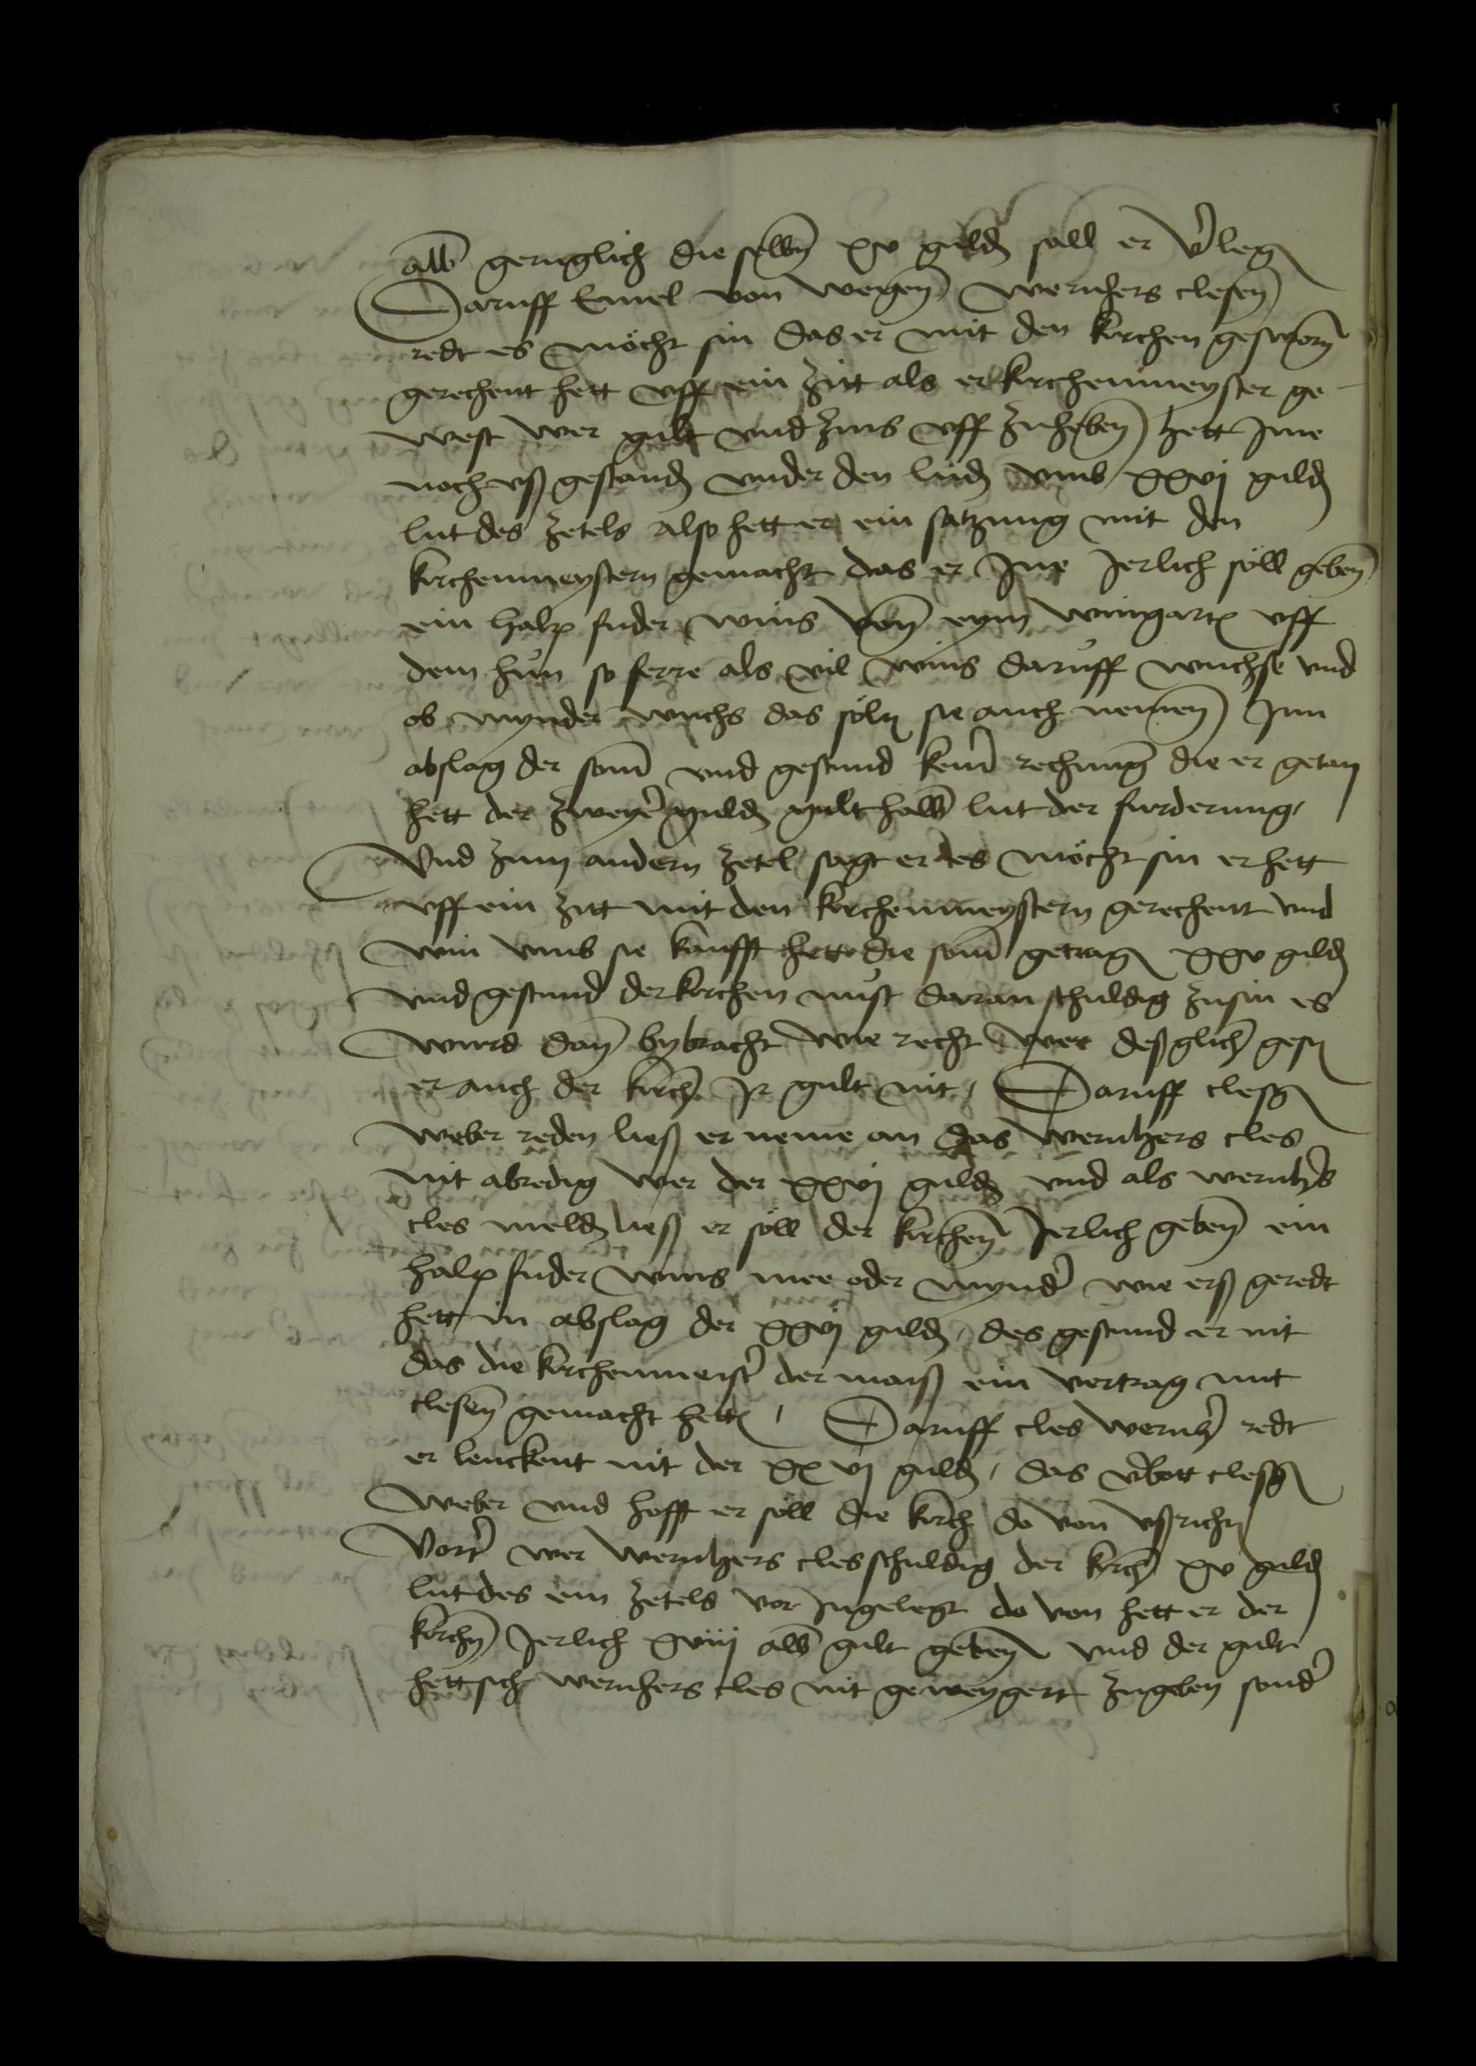 alb geruglich die selbn xv guldn soll er v'legn
Daruff Emel von wegen wernhers clesen
redt es möcht sin das er mit den kirchen gesworn
gerechent hett vff ein zitt als er kirchenmeyster ge-
west wer gult vnd zins vff zuheben hett Jme
noch vß gestandn vnder den ludn vmb xxvj guldn
lut des zetels also hett er ein satzung mit den
kirchenmeystern gemacht das er Jne Jerlich söll geben
ein halp fuder wins von eym wingartn vff
dem hün so ferre als vil wins daruff wuchse vnd
ob mynder wuchs das söln sie auch nemen Jnn
abslag der som vnd gestund kein rechnung die er getan
hett der zweyer guldn gult halb lut der furderung,
Vnd zum andern zetel sagt er des möcht sin er hett
vff ein zitt mit den kirchenmeystern gerechent vnd
win vmb sie kaufft hett die som getragn xxv guldn
vnd gestund der kirchen nust daran schuldig zusin es
wurd dan bybracht wie recht wer deßglich gesn
er auch der kirchn Jr gult nit, Daruff clesgn
weber reden ließ er neme an das wernhers cles
nit abredig wer der xxvj guldn vnd als wernhers
cles meldn ließ er söll der kirchen Jerlich geben ein
halp fuder wins mee oder mynd' wie erß geredt
hett in abslag der xxvj guldn, des gestund er nit
das die kirchenmeist' der maiß ein vertrag mit
clesen gemacht hettn, Daruff cles wernh' redt
er leuckent nit der xxvj guldn, das v'bott clesgn
weber vnd hofft er söll die kirch do von vßrichtn
Vort' wer wernhers cles schuldig der kirchn xv guldn
lut des ein zetels vor Jngelegt do von hett er der
kirchn Jerlich xviij alb gult geben vnd der gult
hett sich wernhers cles nit geweygert zugeben sond'